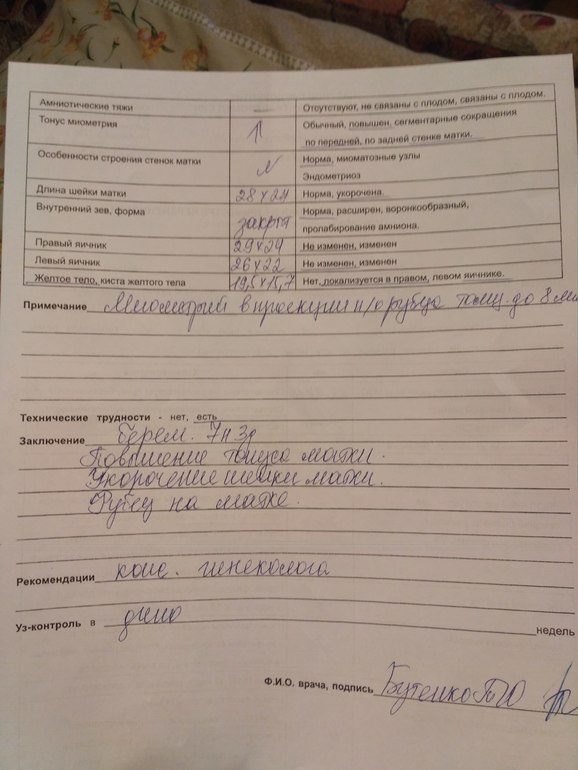 Амниотические тяжи — Отсутствуют, не связаны с плодом, связаны с плодом.
Тонус миометрия Обычный, повышен, сегментарные сокращения
по передней, по задней стенке матки.
Особенности строения стенок матки N Норма, миоматозные узлы
Эндометриоз
Длина шейки матки 28×24 Норма, укорочена.
Внутренний зев, форма закрыт Норма, расширен, воронкообразный,
пролабирование амниона.
Правый яичник 29×24 Не изменен, изменен
Левый яичник 26×22 Не изменен, изменен
Желтое тело, киста желтого тела 19,5×15,7 Нет, локализуется в правом, левом яичнике.
Примечание Миометрий в проекции п/о рубца толщ. до 8 мм
Технические трудности - нет, есть
Заключение Берем. 7н 3д
Повышение тонуса матки.
Укорочение шейки матки.
Рубец на матке.
Рекомендации конс. гинеколога
Уз-контроль в недель
Ф.И.О. врача, подпись Бутенко